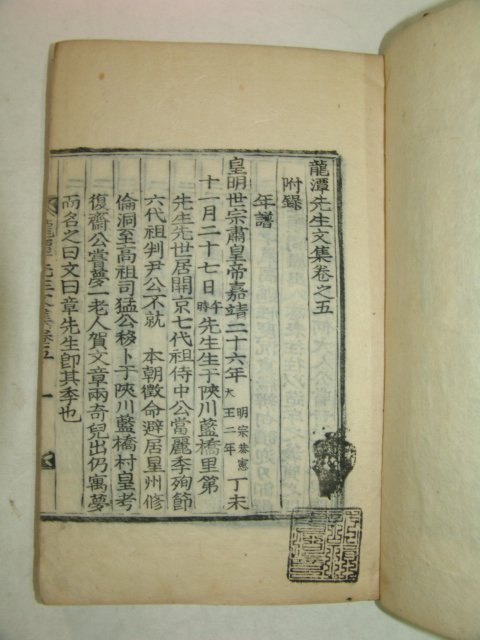 龍潭先生文集卷之五
附錄
年譜
皇明世宗肅皇帝嘉靖二十六年明宗恭憲大王二年丁未
十一月二十七日午時先生生于陜川藍橋里第
先生先世居開京七代祖侍中公當麗季殉節
六代祖判尹公不就 本朝徵命避居星州修
倫洞至高祖司猛公移卜于陜川藍橋村皇考
復齋公嘗夢一老人賀文章兩奇兒出仍寓夢
而名之曰文曰章先生卽其季也
龍潭先生文集卷五 一